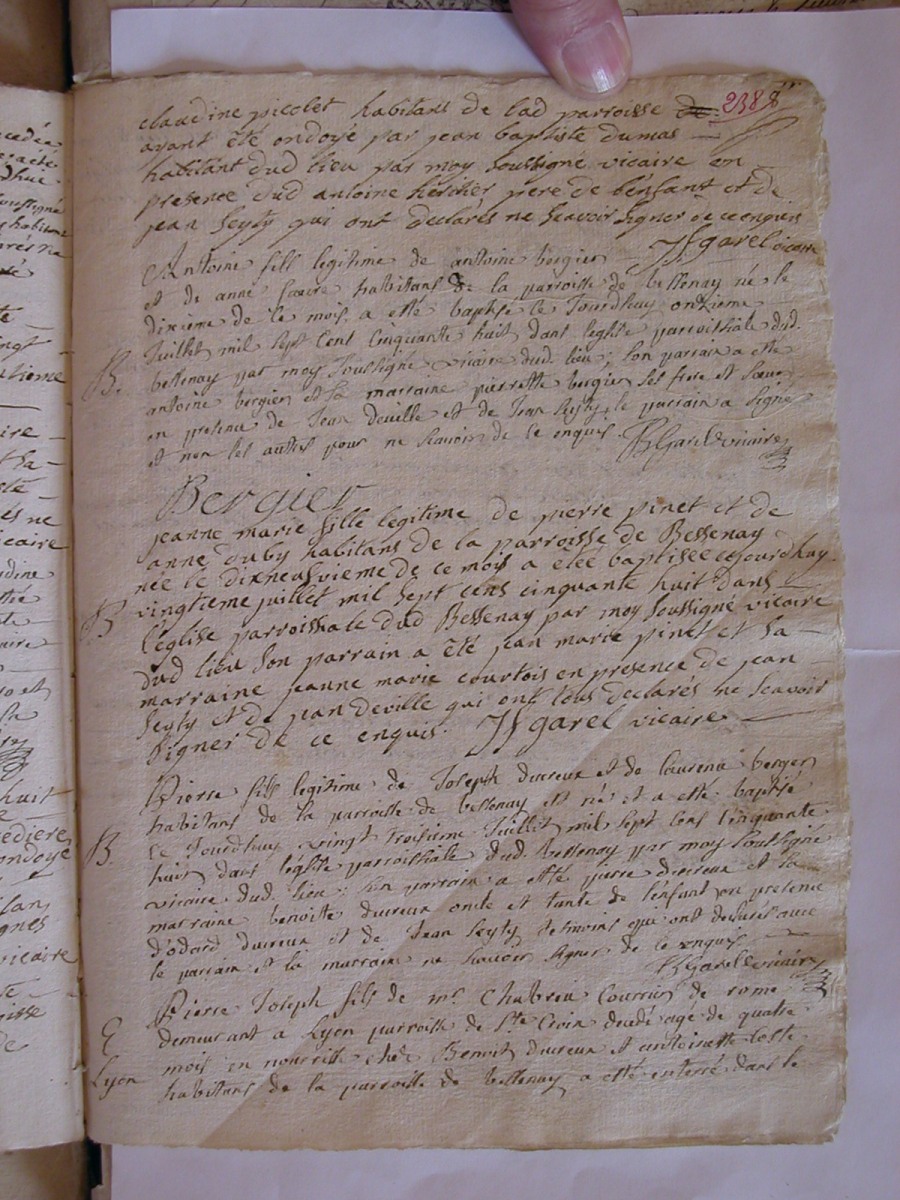 238
claudine picolet habitant de lad parroisse de
ayant été ondoyé par jean baptiste dumas
habitant dud lieu par moy soussigné vicaire en
presence dud antoine pere de l'enfant et de
jean seyty qui ont declarés ne scavoir signer de ce enquis
JfGarel vicaire
Antoine fill legitime de antoine bergier
et de anne habitans de la parroisse de bessenay né le
dixieme de ce mois a etté baptisé le Jourdhuy onzieme
Juillet mil sept Cent Cinquante huit dans leglise parroissiale dud.
B. bessenay par moy soussigné vicaire dud. lieu; son parrain a etté
antoine bergier et sa marraine pierrette bergier ses frere et soeur
en presence de Jean deville et de Jean Seyty, le parrain a signé
et non les autres pour ne scavoir de ce enquis. JfGarel vicaire
Bergier
jeanne marie fille legitime de pierre pinet et de
anne duby habitans de la parroisse de Bessenay
née le dixneufvieme de ce mois a étée baptisée cejourdhuy
B vingtieme juillet mil sept cens cinquante huit dans
l'église parroissiale dud Bessenay par moy soussigné vicaire
dud lieu son parrain a été jean marie pinet et sa
marraine jeanne marie courtois en presence de jean
seyty et de jean deville qui ont tous declarés ne scavoir
signer de ce enquis. JfGarel vicaire
Pierre fils legitime de Joseph ducreux et de laurena berger
habitans de la parroisse de bessenay est né et a etté baptisé
B. Ce Jourdhuy vingt troisieme Juillet mil sept Cens Cinquante
huit dans l'église parroissiale dud. bessenay par moy soussigné
vicaire dud. lieu; son parrain a etté pierre ducreux et sa
marraine benoitte ducreux oncle et tante de l'enfant en presence
d'odard ducreux et de Jean Seyty temoins qui ont declarés avec
le parrain et la marraine ne scavoir signer de ce enquis
JfGarel vicaire
Pierre Joseph fils de mr. Chabrein Courrier de rome
E demeurant a Lyon parroisse de Ste Croix decédé agé de quatre
Lyon mois en nourrisse chez Benoit ducreux et antoinette
habitans de la parroisse de bessenay a etté enterré dans le